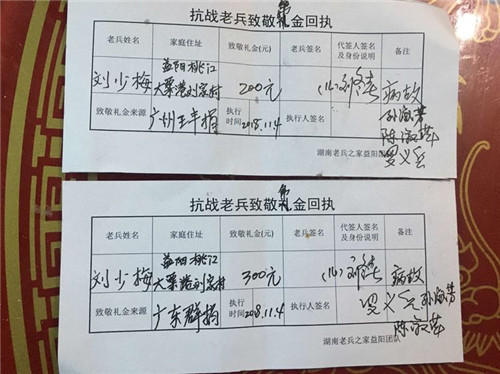 抗战老兵致敬礼金回执
老兵姓名 家庭住址 致敬礼金(元) 老兵签名 代签人签名及身份说明 备注
刘少梅 益阳桃江大栗港刘家村 200元 病故
致敬礼金来源 广州王年捐 执行时间 2018.11.4 执行人签名
陈淑萍
湖南老兵之家益阳团队
抗战老兵致敬礼金回执
老兵姓名 家庭住址 致敬礼金(元) 老兵签名 代签人签名及身份说明 备注
刘少梅 益阳桃江大栗港刘家村 300元 病故
致敬礼金来源 广东群捐 执行时间 2018.11.4 执行人签名
陈淑萍
湖南老兵之家益阳团队